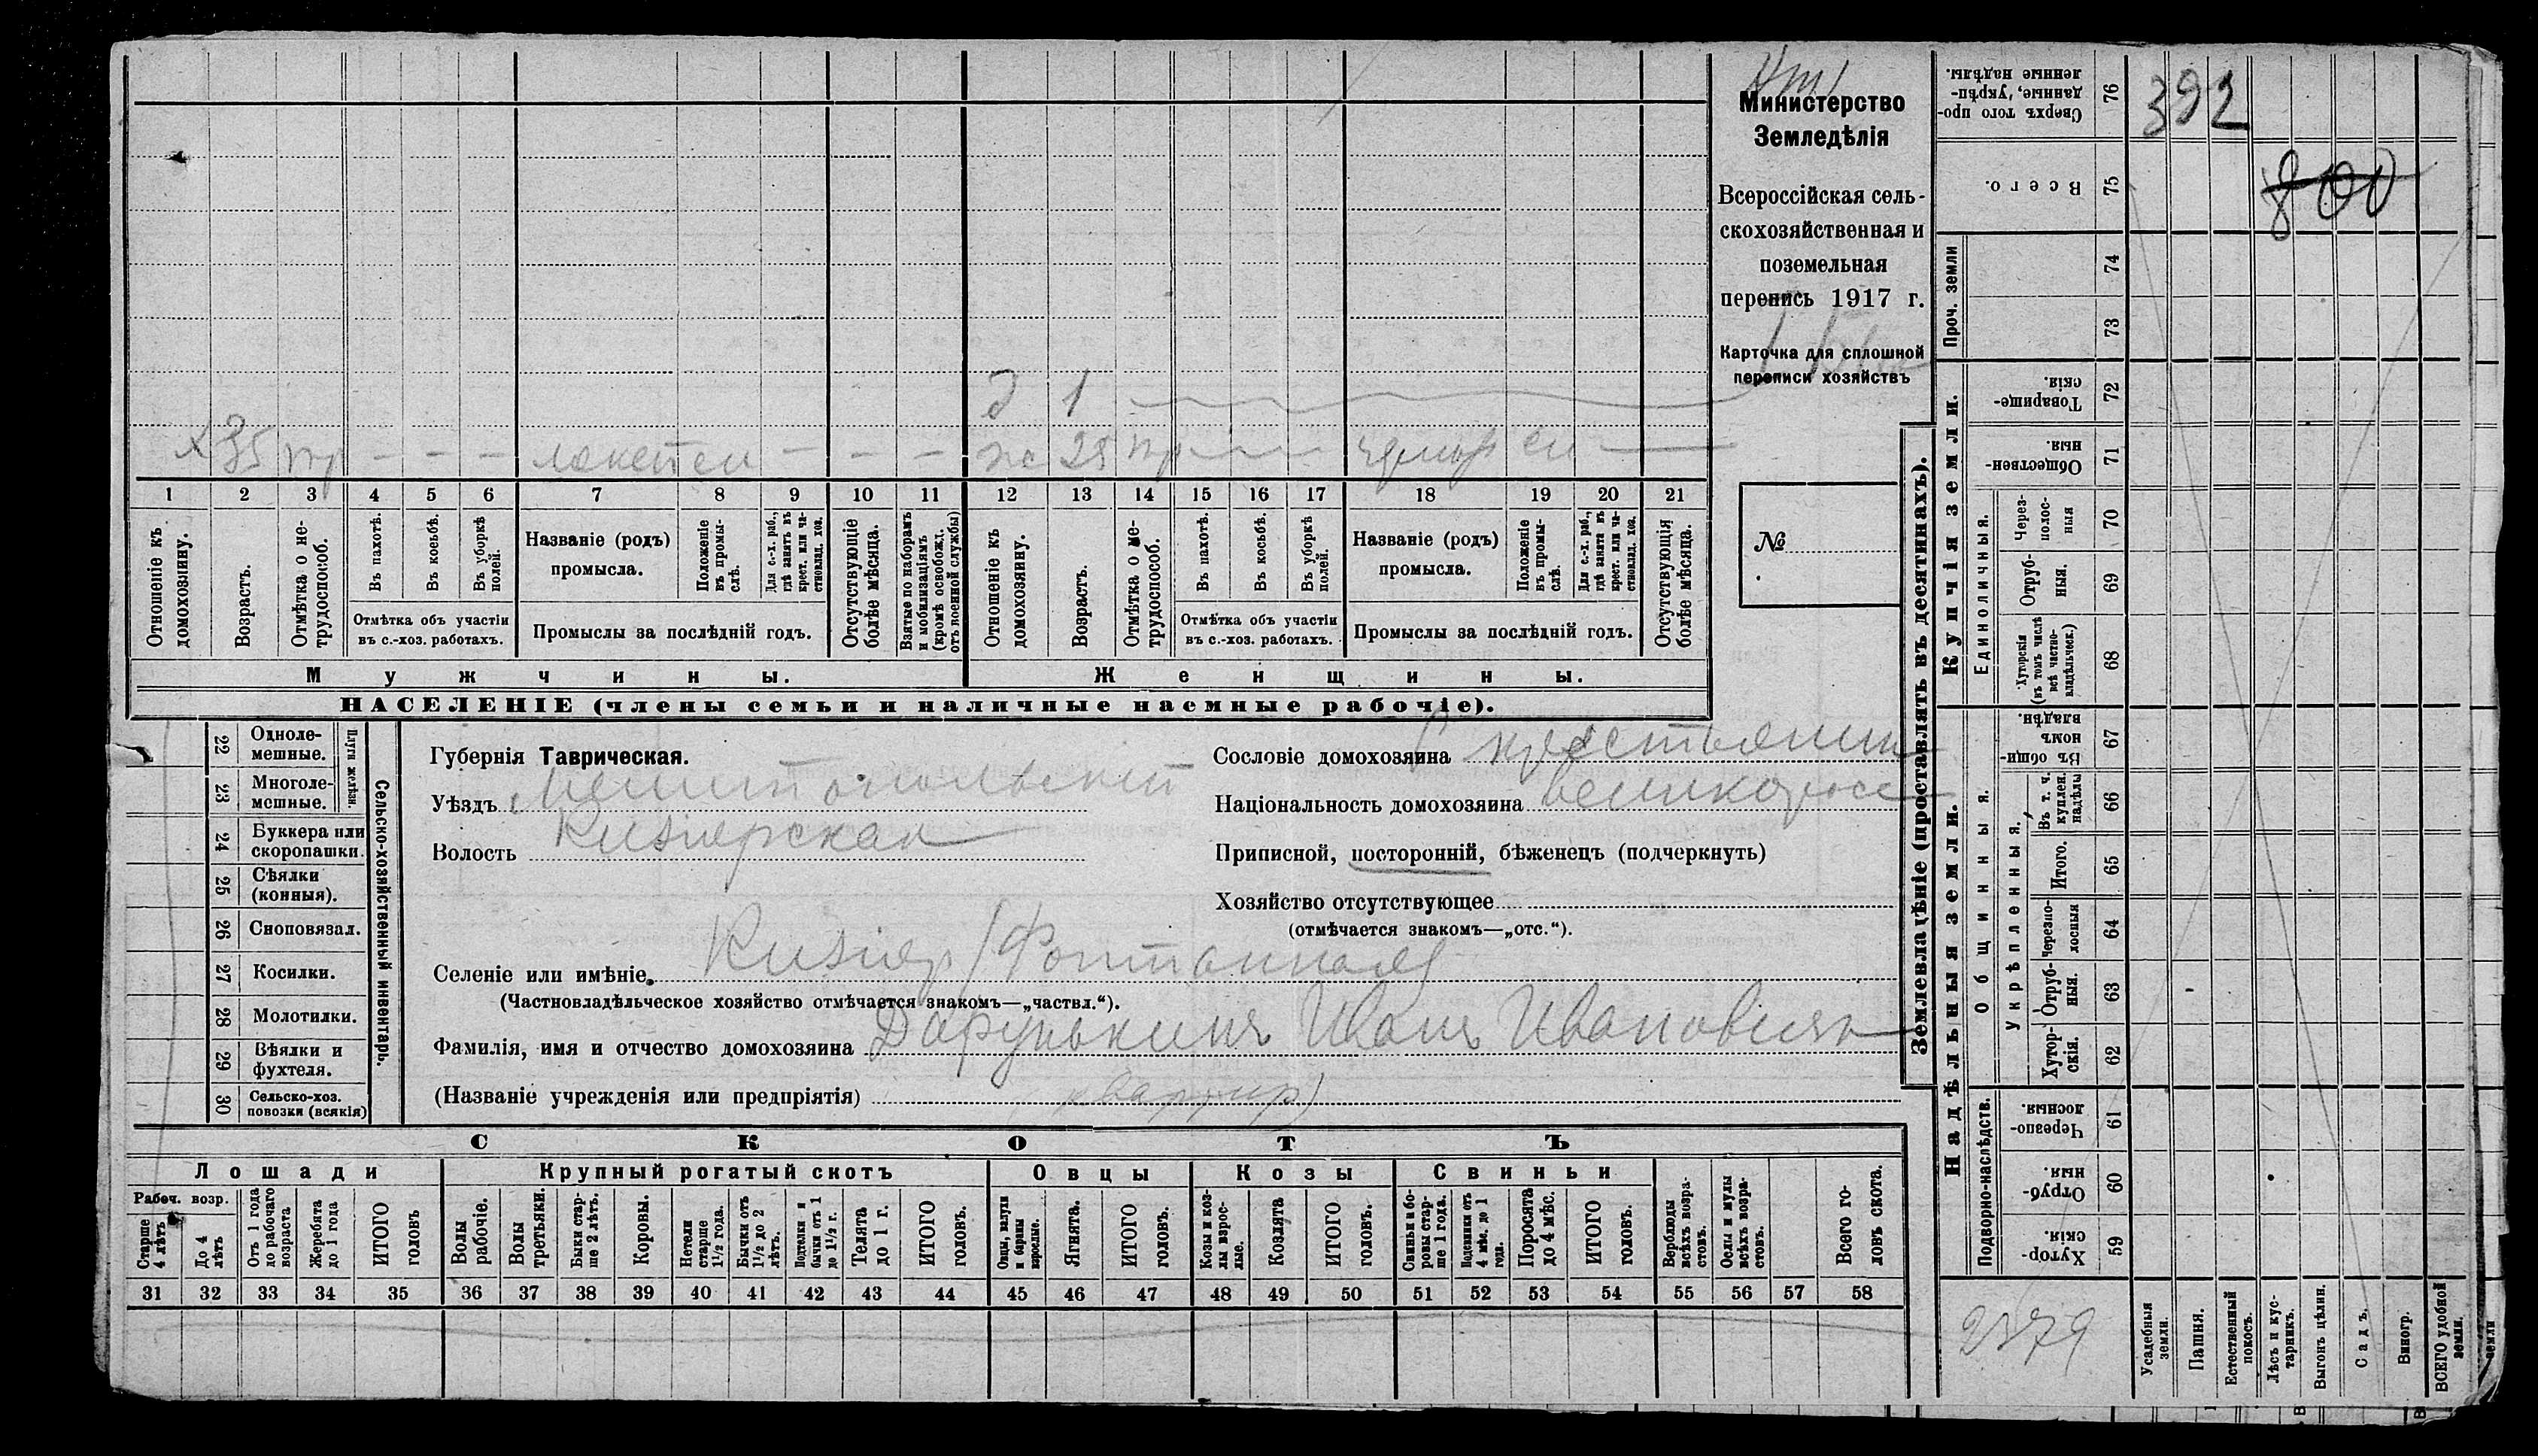 Министерство
Земледѣлія
Всероссійская сель-
скохозяйственная и
поземельная
перепись 1917 г.
Карточка для сплошной
переписи хозяйствъ
№
д 1
х 35 пр - - - - - - ж 25 пр
1 2 3 4 5 6 7 8 9 10 11 12 13 14 15 16 17 18 19 20 21
Отношеніе къ домохозяину.
Возрастъ.
Отмѣтка о не-трудоспособ.
Въ пахотѣ.
Въ косьбѣ.
Въ уборкѣ полей.
Отмѣтка объ участіи
въ с.-хоз. работахъ.
Названіе (родъ)
промысла.
Положеніе въ промы-слѣ.
Для с.-х. раб., гдѣ занятъ въ крест. или ча-стновлад. хоз.
Промыслы за послѣдній годъ.
Отсутствующіе болѣе мѣсяца.
Взятые по наборамъ и мобилизаціямъ (кромѣ освобожд. отъ военной службы)
Отношеніе къ домохозяину.
Возрастъ.
Отмѣтка о не-трудоспособ.
Въ пахотѣ.
Въ косьбѣ.
Въ уборкѣ полей.
Отмѣтка объ участіи
въ с.-хоз. работахъ.
Названіе (родъ)
промысла.
Положеніе въ промы-слѣ.
Для с.-х. раб., гдѣ занята въ крест. или ча-стновлад. хоз.
Промыслы за послѣдній годъ.
Отсутствующія болѣе мѣсяца.
Мужчины.
Женщины.
НАСЕЛЕНІЕ (члены семьи и наличные наемные рабочіе).
22 Одноле-мешные.
23 Многоле-мешные.
Плуги желѣзн.
24 Буккера или скоропашки.
25 Сѣялки (конныя).
26 Сноповязал.
27 Косилки.
28 Молотилки.
29 Вѣялки и фухтеля.
30 Сельско-хоз. повозки (всякія)
Сельско-хозяйственный инвентарь.
Губернія Таврическая.
Уѣздъ Мелитопольскій
Волость Кизиярская
Селеніе или имѣніе. Кизияр (Фонтанная)
(Частновладѣльческое хозяйство отмѣчается знакомъ—„частвл.“).
Фамилія, имя и отчество домохозяина Дарунькинъ Иванъ Ивановичъ
(Названіе учрежденія или предпріятія) (квартир)
Сословіе домохозяина крестьянин
Національность домохозяина великоросс
Приписной, посторонній, бѣженецъ (подчеркнуть)
Хозяйство отсутствующее
(отмѣчается знакомъ—„отс.“).
СКОТЪ
Лошади
Крупный рогатый скотъ
Овцы
Козы
Свиньи
Рабоч. возр.
Старше 4 лѣтъ
До 4 лѣтъ
Отъ 1 года до рабочаго возраста
Жеребята до 1 года
ИТОГО головъ
Волы рабочіе.
Волы третьяки.
Быки стар-ше 2 лѣтъ.
Коровы.
Нетели старше 1½ года.
Бычки отъ 1½ до 2 лѣтъ.
Подтелки и бычки отъ 1 до 1½ г.
Телята до 1 г.
ИТОГО головъ.
Овцы, валухи и бараны взрослые.
Ягнята.
ИТОГО головъ.
Козы и коз-лы взрос-лые.
Козлята
ИТОГО головъ.
Свиньи и бо-ровы стар-ше 1 года.
Подсвинки отъ 4 мѣс. до 1 года.
Поросята до 4 мѣс.
ИТОГО головъ.
Верблюды всѣхъ возра-стовъ.
Ослы и мулы всѣхъ возра-стовъ.
Всего го-ловъ скота.
31 32 33 34 35 36 37 38 39 40 41 42 43 44 45 46 47 48 49 50 51 52 53 54 55 56 57 58
Землевладѣніе (проставлять въ десятинахъ).
Сверхъ того про-данные, укрѣп-ленные надѣлы. 76 392
Всего. 75 800
Проч. земли
74
73
Купчія земли.
Товарище-скія. 72
Обществен-ныя. 71
Единоличныя.
Через-полос-ныя 70
Отруб-ныя. 69
Хуторскія (въ томъ числѣ всѣ частно-владѣльческ.) 68
Надѣльныя земли.
Общинныя.
Въ общин-номъ владѣн. 67
Укрѣпленныя.
Въ т. ч. куплен. надѣлы 66
Итого. 65
Черезпо-лосныя 64
Отруб-ныя. 63
Хутор-скія. 62
Подворно-наслѣдств.
Черезпо-лосныя. 61
Отруб-ныя. 60
Хутор-скія. 59
2379
Усадебныя земли.
Пашня.
Естественный покосъ.
Лѣсъ и кус-тарникъ.
Выгонъ цѣлин.
Садъ.
Виногр.
ВСЕГО удобной земли.